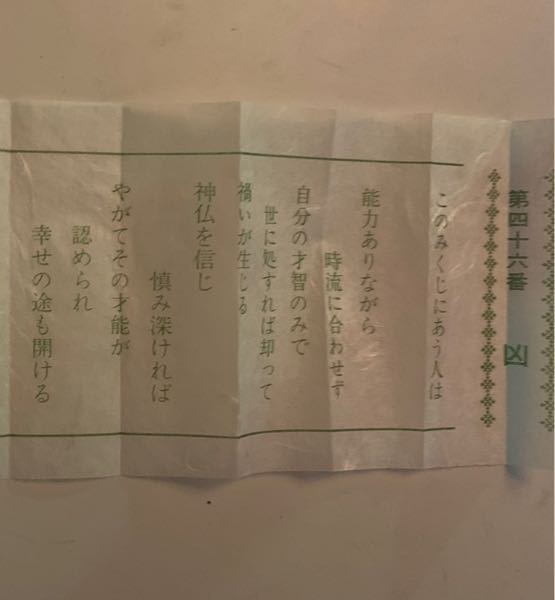 第四十六番 凶
このみくじにあう人は
能力ありながら
時流に合わせず
自分の才智のみで
世に処すれば却って
禍いが生じる
神仏を信じ
慎み深ければ
やがてその才能が
認められ
幸せの途も開ける